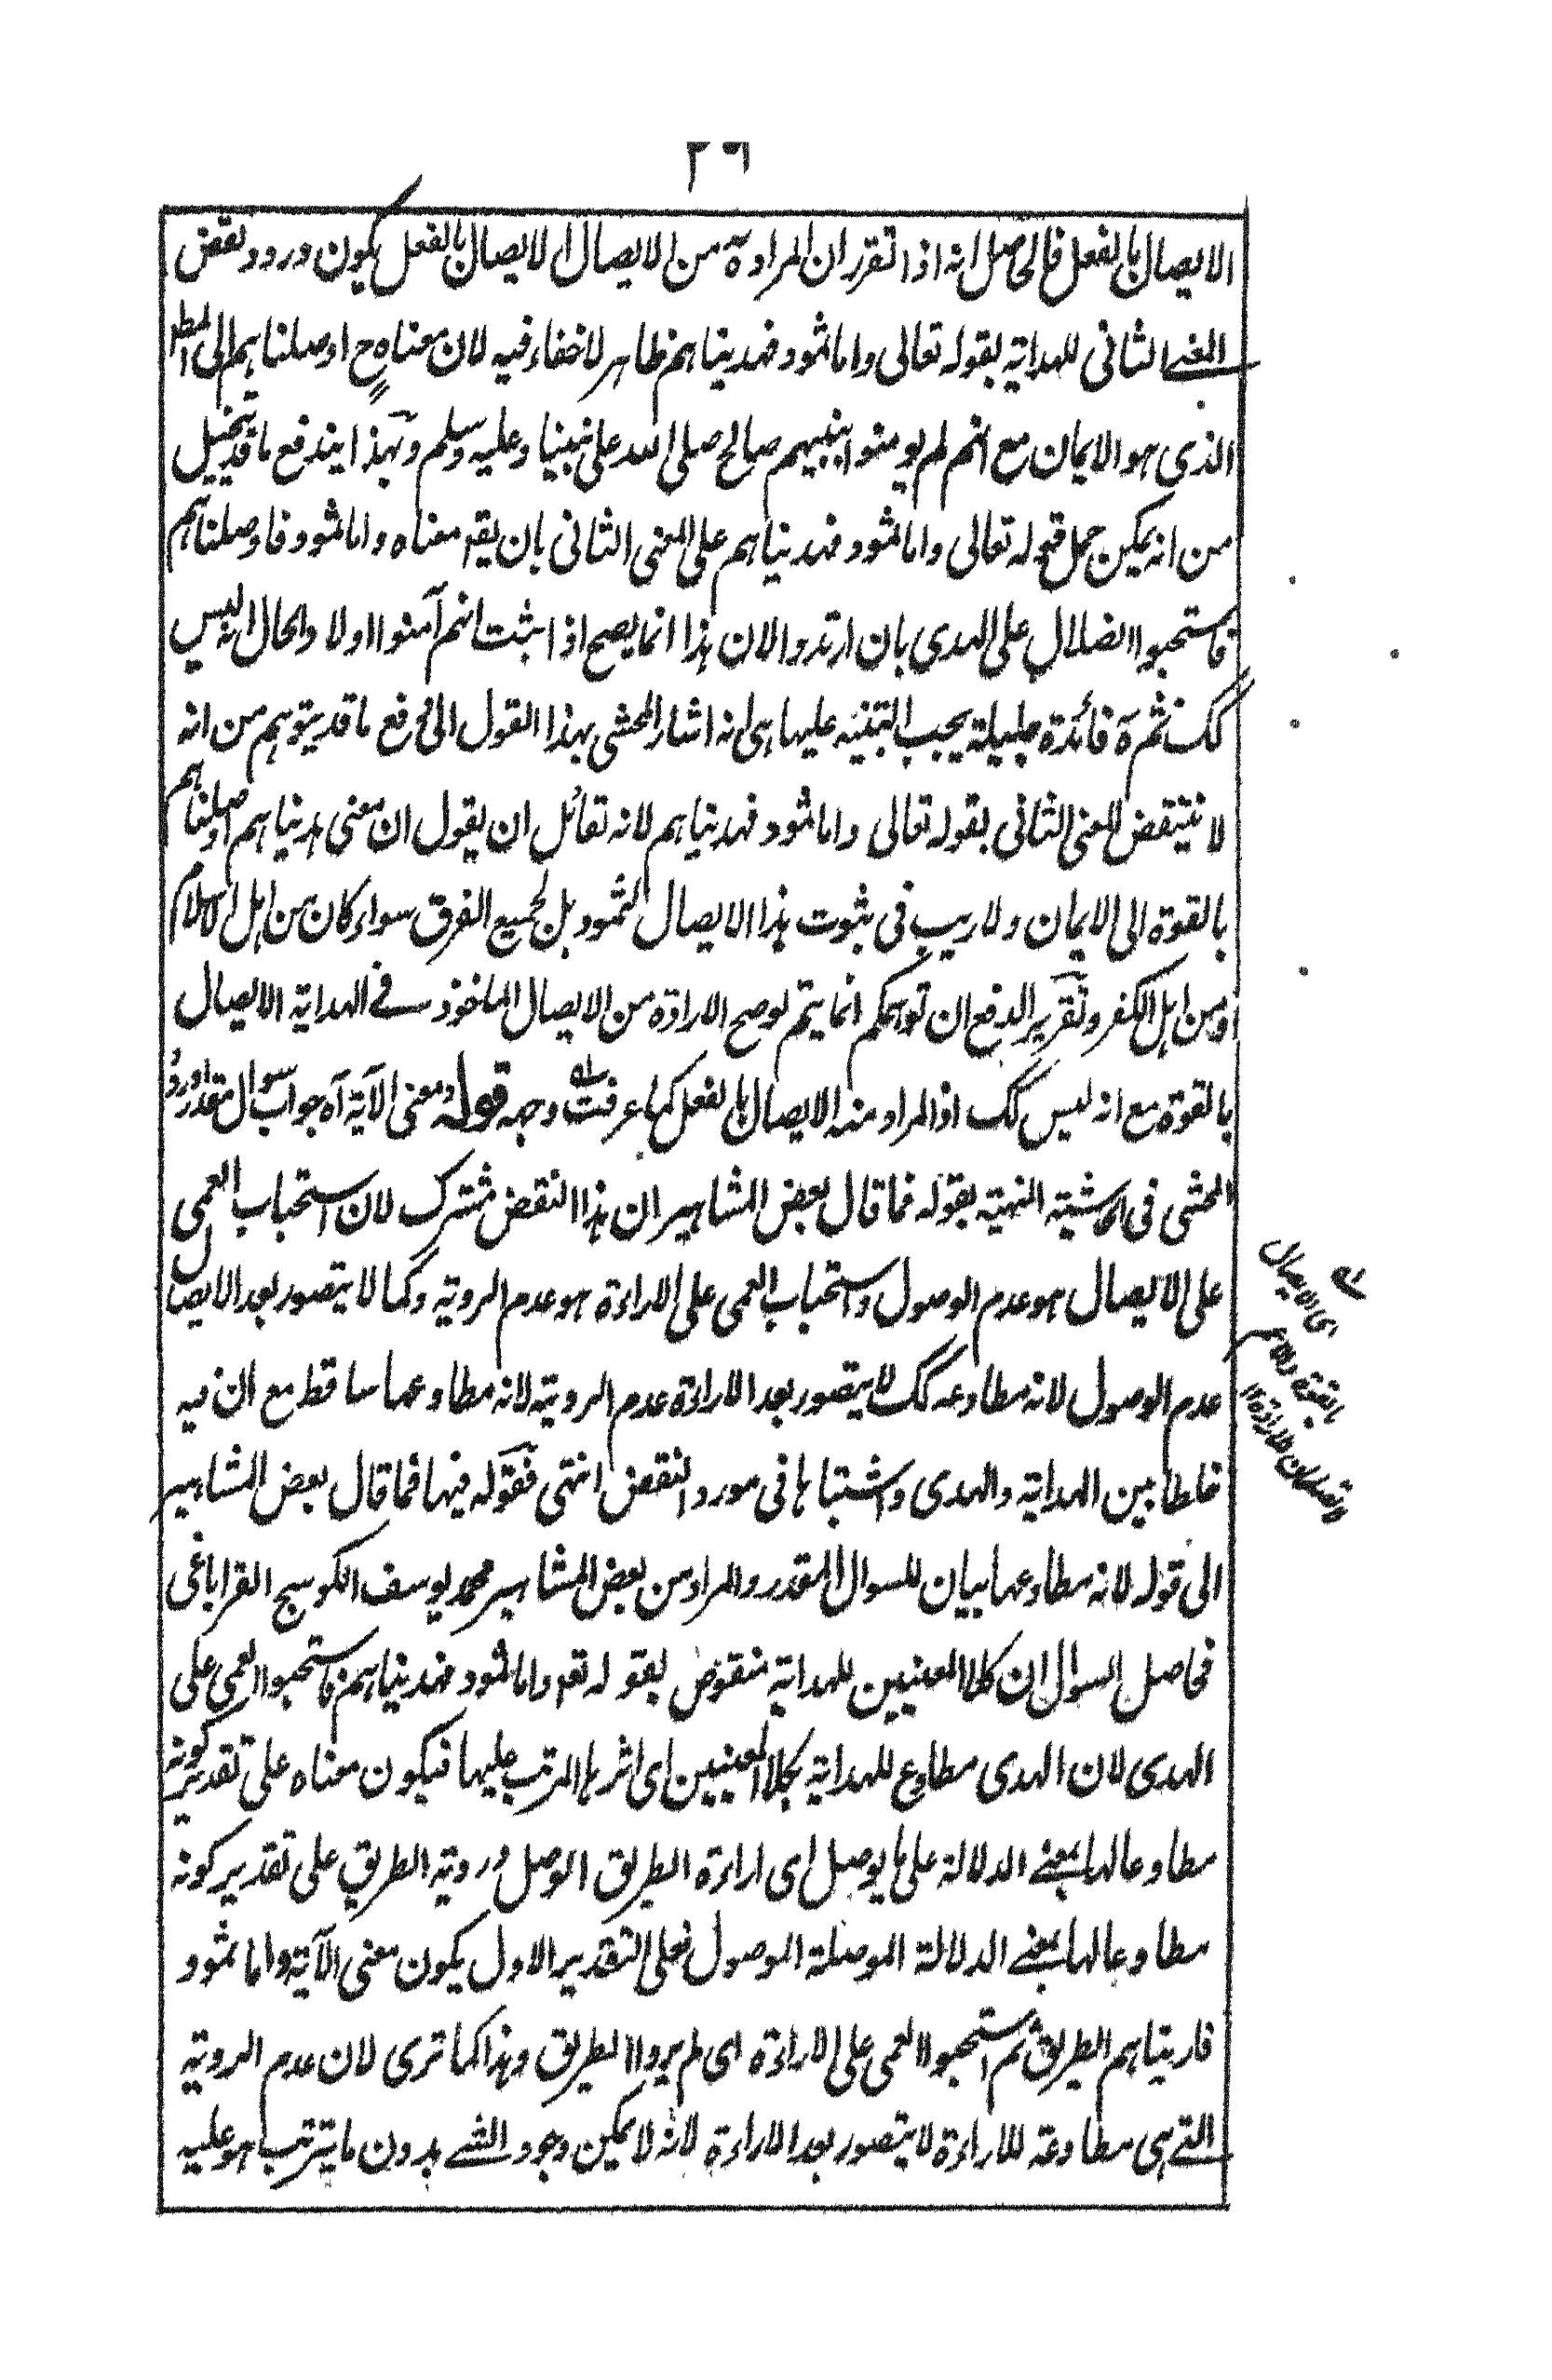 ٢٦
الايصال بالفعل فالحاصل انه اذا تقرر ان المراد ة من الايصال الايصال بالفعل يكون ورود نقض
المعنے الثانى للهداية بقوله تعالى واما ثمود فهديناهم ظاهر لا خفاء فيه لان معناه ح اوصلناهم الى المط
الذى هو الايمان مع انهم لم يومنوا بنبيهم صالح صلى الله على نبينا وعليه وسلم وبهذا يندفع ما قد يتخيل
من انه يمكن حمل قوله تعالى واما ثمود فهديناهم على المعنى الثانى بان يقه معناه واما ثمود فاوصلناهم
فاستحبوا الضلال على الهدى بان ارتدوا لان هذا انما يصح اذا ثبت انهم آمنوا اولا والحال انه ليس
كك ثم ة فائدة جليلة يجب التنبيه عليها هى انه اشار المحشى بهذا القول الى دفع ما قد يتوهم من انه
لا ينتقض المعنى الثانى بقوله تعالى واما ثمود فهديناهم لانه لقائل ان يقول ان معنى هديناهم اوصلناهم
بالقوة الى الايمان ولا ريب فى ثبوت هذا الايصال لثمود بل لجميع الفرق سواء كان من اهل الاسلام
او من اهل الكفر وتقرير الدفع ان توهمكم انما يتم لو صح الارادة من الايصال الماخوذ فے الهداية الايصال
بالقوة مع انه ليس كك اذ المراد منه الايصال بالفعل كما عرفت وجهه قوله ومعنى الآية آه جواب سوال مقدر اورده
المحشى فى الحاشية المنهية بقوله فما قال بعض المشاهير ان هذا النقض مشترك لان استحباب العمى
على الايصال هو عدم الوصول واستحباب العمى على الاراءة هو عدم الروية وكما لا يتصور بعد الايصال
عدم الوصول لانه مطاوعه كك لا يتصور بعد الاراءة عدم الروية لانه مطاوعها ساقط مع ان فيه
خلطا بين الهداية والهدى واشتباها فى مورد النقض انتهى فقوله فيها فما قال بعض المشاهير
الى قوله لانه مطاوعها بيان للسوال المقدر والمراد من بعض المشاهير محمد يوسف الكوسج القراباغى
فحاصل السوال ان كلا المعنيين للهداية منقوض بقوله تعه واما ثمود فهديناهم فاستحبوا العمى على
الهدى لان الهدى مطاوع للهداية بكلا المعنيين اى اثرها المرتب عليها فيكون معناه على تقدير كونه
مطاوعا لها بمعنے الدلالة على ما يوصل اى اراءة الطريق الوصل وروية الطريق على تقدير كونه
مطاوعا لها بمعنے الدلالة الموصلة الوصول فعلى التقدير الاول يكون معنى الآية واما ثمود
فاريناهم الطريق ثم استحبوا العمى على الاراءة اى لم يروا الطريق وهذا كما ترى لان عدم الروية
التے هى مطاوعة للاراءة لا يتصور بعد الاراءة لانه لا يمكن وجود الشے بدون ما يترتب هو عليه
اى الايصال